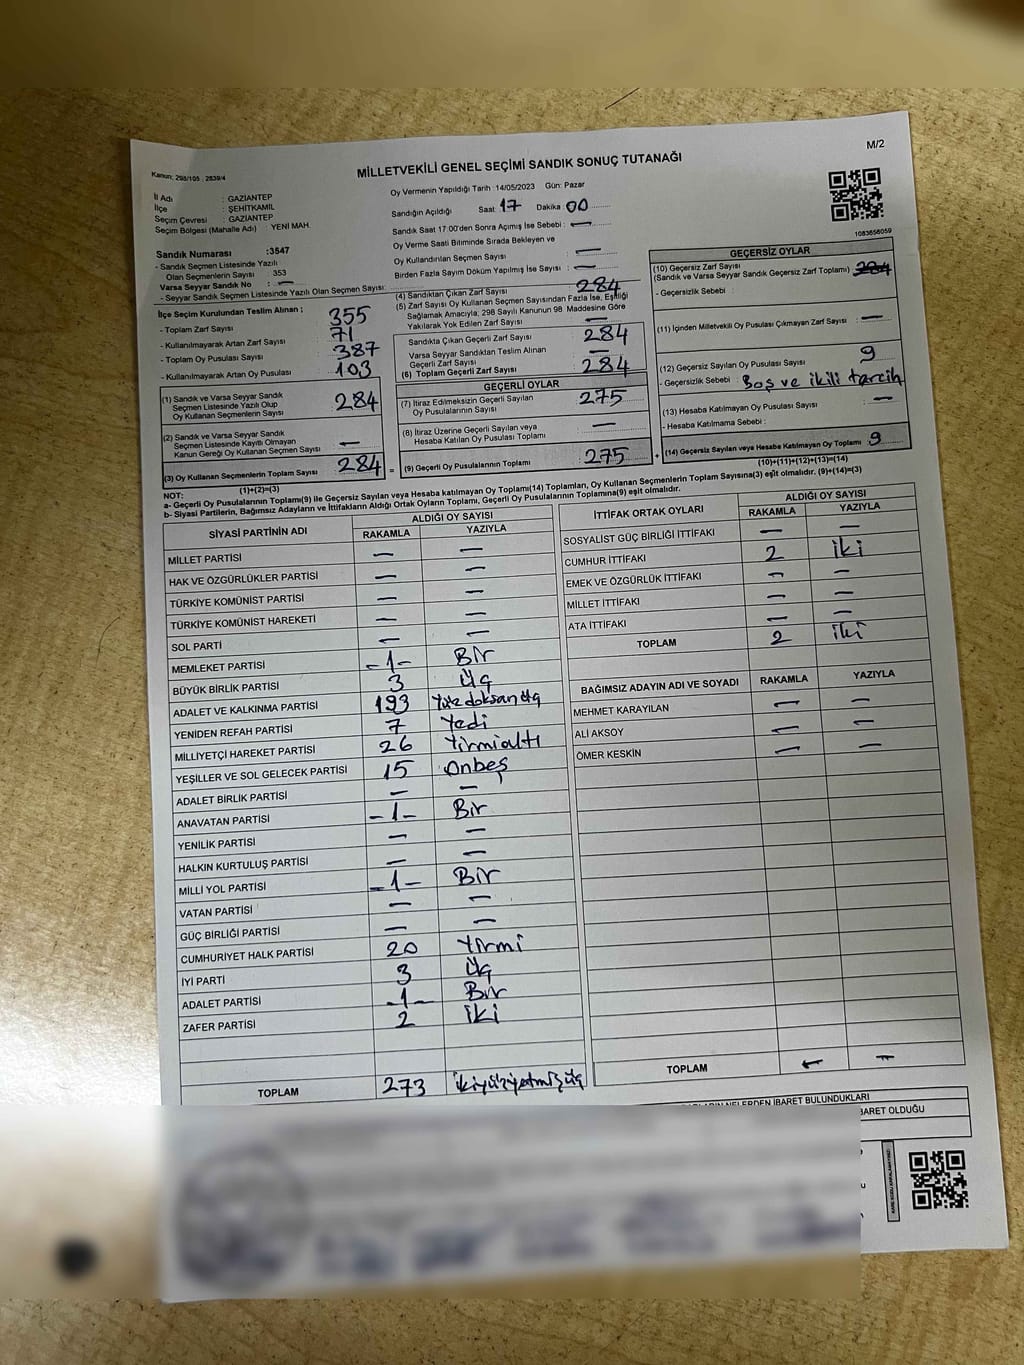 M/2
Kanun: 298/105 , 2839/4
MİLLETVEKİLİ GENEL SEÇİMİ SANDIK SONUÇ TUTANAĞI
İl Adı : GAZİANTEP
İlçe : ŞEHİTKAMİL
Seçim Çevresi : GAZİANTEP
Seçim Bölgesi (Mahalle Adı) : YENİ MAH.
Oy Vermenin Yapıldığı Tarih :14/05/2023 Gün: Pazar
Sandığın Açıldığı Saat: 17 Dakika 00
Sandık Saat 17:00'den Sonra Açımış İse Sebebi : —
Oy Verme Saati Bitiminde Sırada Bekleyen ve
Oy Kullandırılan Seçmen Sayısı —
Birden Fazla Sayım Döküm Yapılmış İse Sayısı : —
1083656059
Sandık Numarası :3547
- Sandık Seçmen Listesinde Yazılı
Olan Seçmenlerin Sayısı : 353
Varsa Seyyar Sandık No : —
- Seyyar Sandık Seçmen Listesinde Yazılı Olan Seçmen Sayısı:
İlçe Seçim Kurulundan Teslim Alınan ;
- Toplam Zarf Sayısı 355
- Kullanılmayarak Artan Zarf Sayısı 71
- Toplam Oy Pusulası Sayısı 387
- Kullanılmayarak Artan Oy Pusulası 103
(1) Sandık ve Varsa Seyyar Sandık
Seçmen Listesinde Yazılı Olup
Oy Kullanan Seçmenlerin Sayısı 284
(2) Sandık ve Varsa Seyyar Sandık
Seçmen Listesinde Kayıtlı Olmayan
Kanun Gereği Oy Kullanan Seçmen Sayısı —
(3) Oy Kullanan Seçmenlerin Toplam Sayısı 284 =
(1)+(2)=(3)
(4) Sandıktan Çıkan Zarf Sayısı 284
(5) Zarf Sayısı Oy Kullanan Seçmen Sayısından Fazla İse, Eşitliği
Sağlamak Amacıyla; 298 Sayılı Kanunun 98 Maddesine Göre
Yakılarak Yok Edilen Zarf Sayısı —
Sandıkta Çıkan Geçerli Zarf Sayısı 284
Varsa Seyyar Sandıktan Teslim Alınan
Geçerli Zarf Sayısı —
(6) Toplam Geçerli Zarf Sayısı 284
GEÇERLİ OYLAR
(7) İtiraz Edilmeksizin Geçerli Sayılan
Oy Pusulalarının Sayısı 275
(8) İtiraz Üzerine Geçerli Sayılan veya
Hesaba Katılan Oy Pusulası Toplamı —
(9) Geçerli Oy Pusulalarının Toplamı 275 +
GEÇERSİZ OYLAR
(10) Geçersiz Zarf Sayısı
(Sandık ve Varsa Seyyar Sandık Geçersiz Zarf Toplamı) 284
- Geçersizlik Sebebi :
(11) İçinden Milletvekili Oy Pusulası Çıkmayan Zarf Sayısı —
(12) Geçersiz Sayılan Oy Pusulası Sayısı 9
- Geçersizlik Sebebi : Boş ve ikili tercih
(13) Hesaba Katılmayan Oy Pusulası Sayısı —
- Hesaba Katılmama Sebebi :
(14) Geçersiz Sayılan veya Hesaba Katılmayan Oy Toplamı 9
(10)+(11)+(12)+(13)=(14)
NOT:
a- Geçerli Oy Pusulalarının Toplamı(9) ile Geçersiz Sayılan veya Hesaba katılmayan Oy Toplamı(14) Toplamları, Oy Kullanan Seçmenlerin Toplam Sayısına(3) eşit olmalıdır. (9)+(14)=(3)
b- Siyasi Partilerin, Bağımsız Adayların ve İttifakların Aldığı Ortak Oyların Toplamı, Geçerli Oy Pusulalarının Toplamına(9) eşit olmalıdır.
SİYASİ PARTİNİN ADI ALDIĞI OY SAYISI
RAKAMLA YAZIYLA
MİLLET PARTİSİ — —
HAK VE ÖZGÜRLÜKLER PARTİSİ — —
TÜRKİYE KOMÜNİST PARTİSİ — —
TÜRKİYE KOMÜNİST HAREKETİ — —
SOL PARTİ — —
MEMLEKET PARTİSİ -1- Bir
BÜYÜK BİRLİK PARTİSİ 3 Üç
ADALET VE KALKINMA PARTİSİ 193 Yüzdoksanüç
YENİDEN REFAH PARTİSİ 7 Yedi
MİLLİYETÇİ HAREKET PARTİSİ 26 Yirmialtı
YEŞİLLER VE SOL GELECEK PARTİSİ 15 Onbeş
ADALET BİRLİK PARTİSİ — —
ANAVATAN PARTİSİ -1- Bir
YENİLİK PARTİSİ — —
HALKIN KURTULUŞ PARTİSİ — —
MİLLİ YOL PARTİSİ -1- Bir
VATAN PARTİSİ — —
GÜÇ BİRLİĞİ PARTİSİ — —
CUMHURİYET HALK PARTİSİ 20 Yirmi
İYİ PARTİ 3 Üç
ADALET PARTİSİ -1- Bir
ZAFER PARTİSİ 2 İki
TOPLAM 273 ikiyüzyetmişüç
İTTİFAK ORTAK OYLARI ALDIĞI OY SAYISI
RAKAMLA YAZIYLA
SOSYALİST GÜÇ BİRLİĞİ İTTİFAKI — —
CUMHUR İTTİFAKI 2 iki
EMEK VE ÖZGÜRLÜK İTTİFAKI — —
MİLLET İTTİFAKI — —
ATA İTTİFAKI — —
TOPLAM 2 iki
BAĞIMSIZ ADAYIN ADI VE SOYADI RAKAMLA YAZIYLA
MEHMET KARAYILAN — —
ALİ AKSOY — —
ÖMER KESKİN — —
TOPLAM — —
NELERDEN İBARET BULUNDUKLARI
BARET OLDUĞU